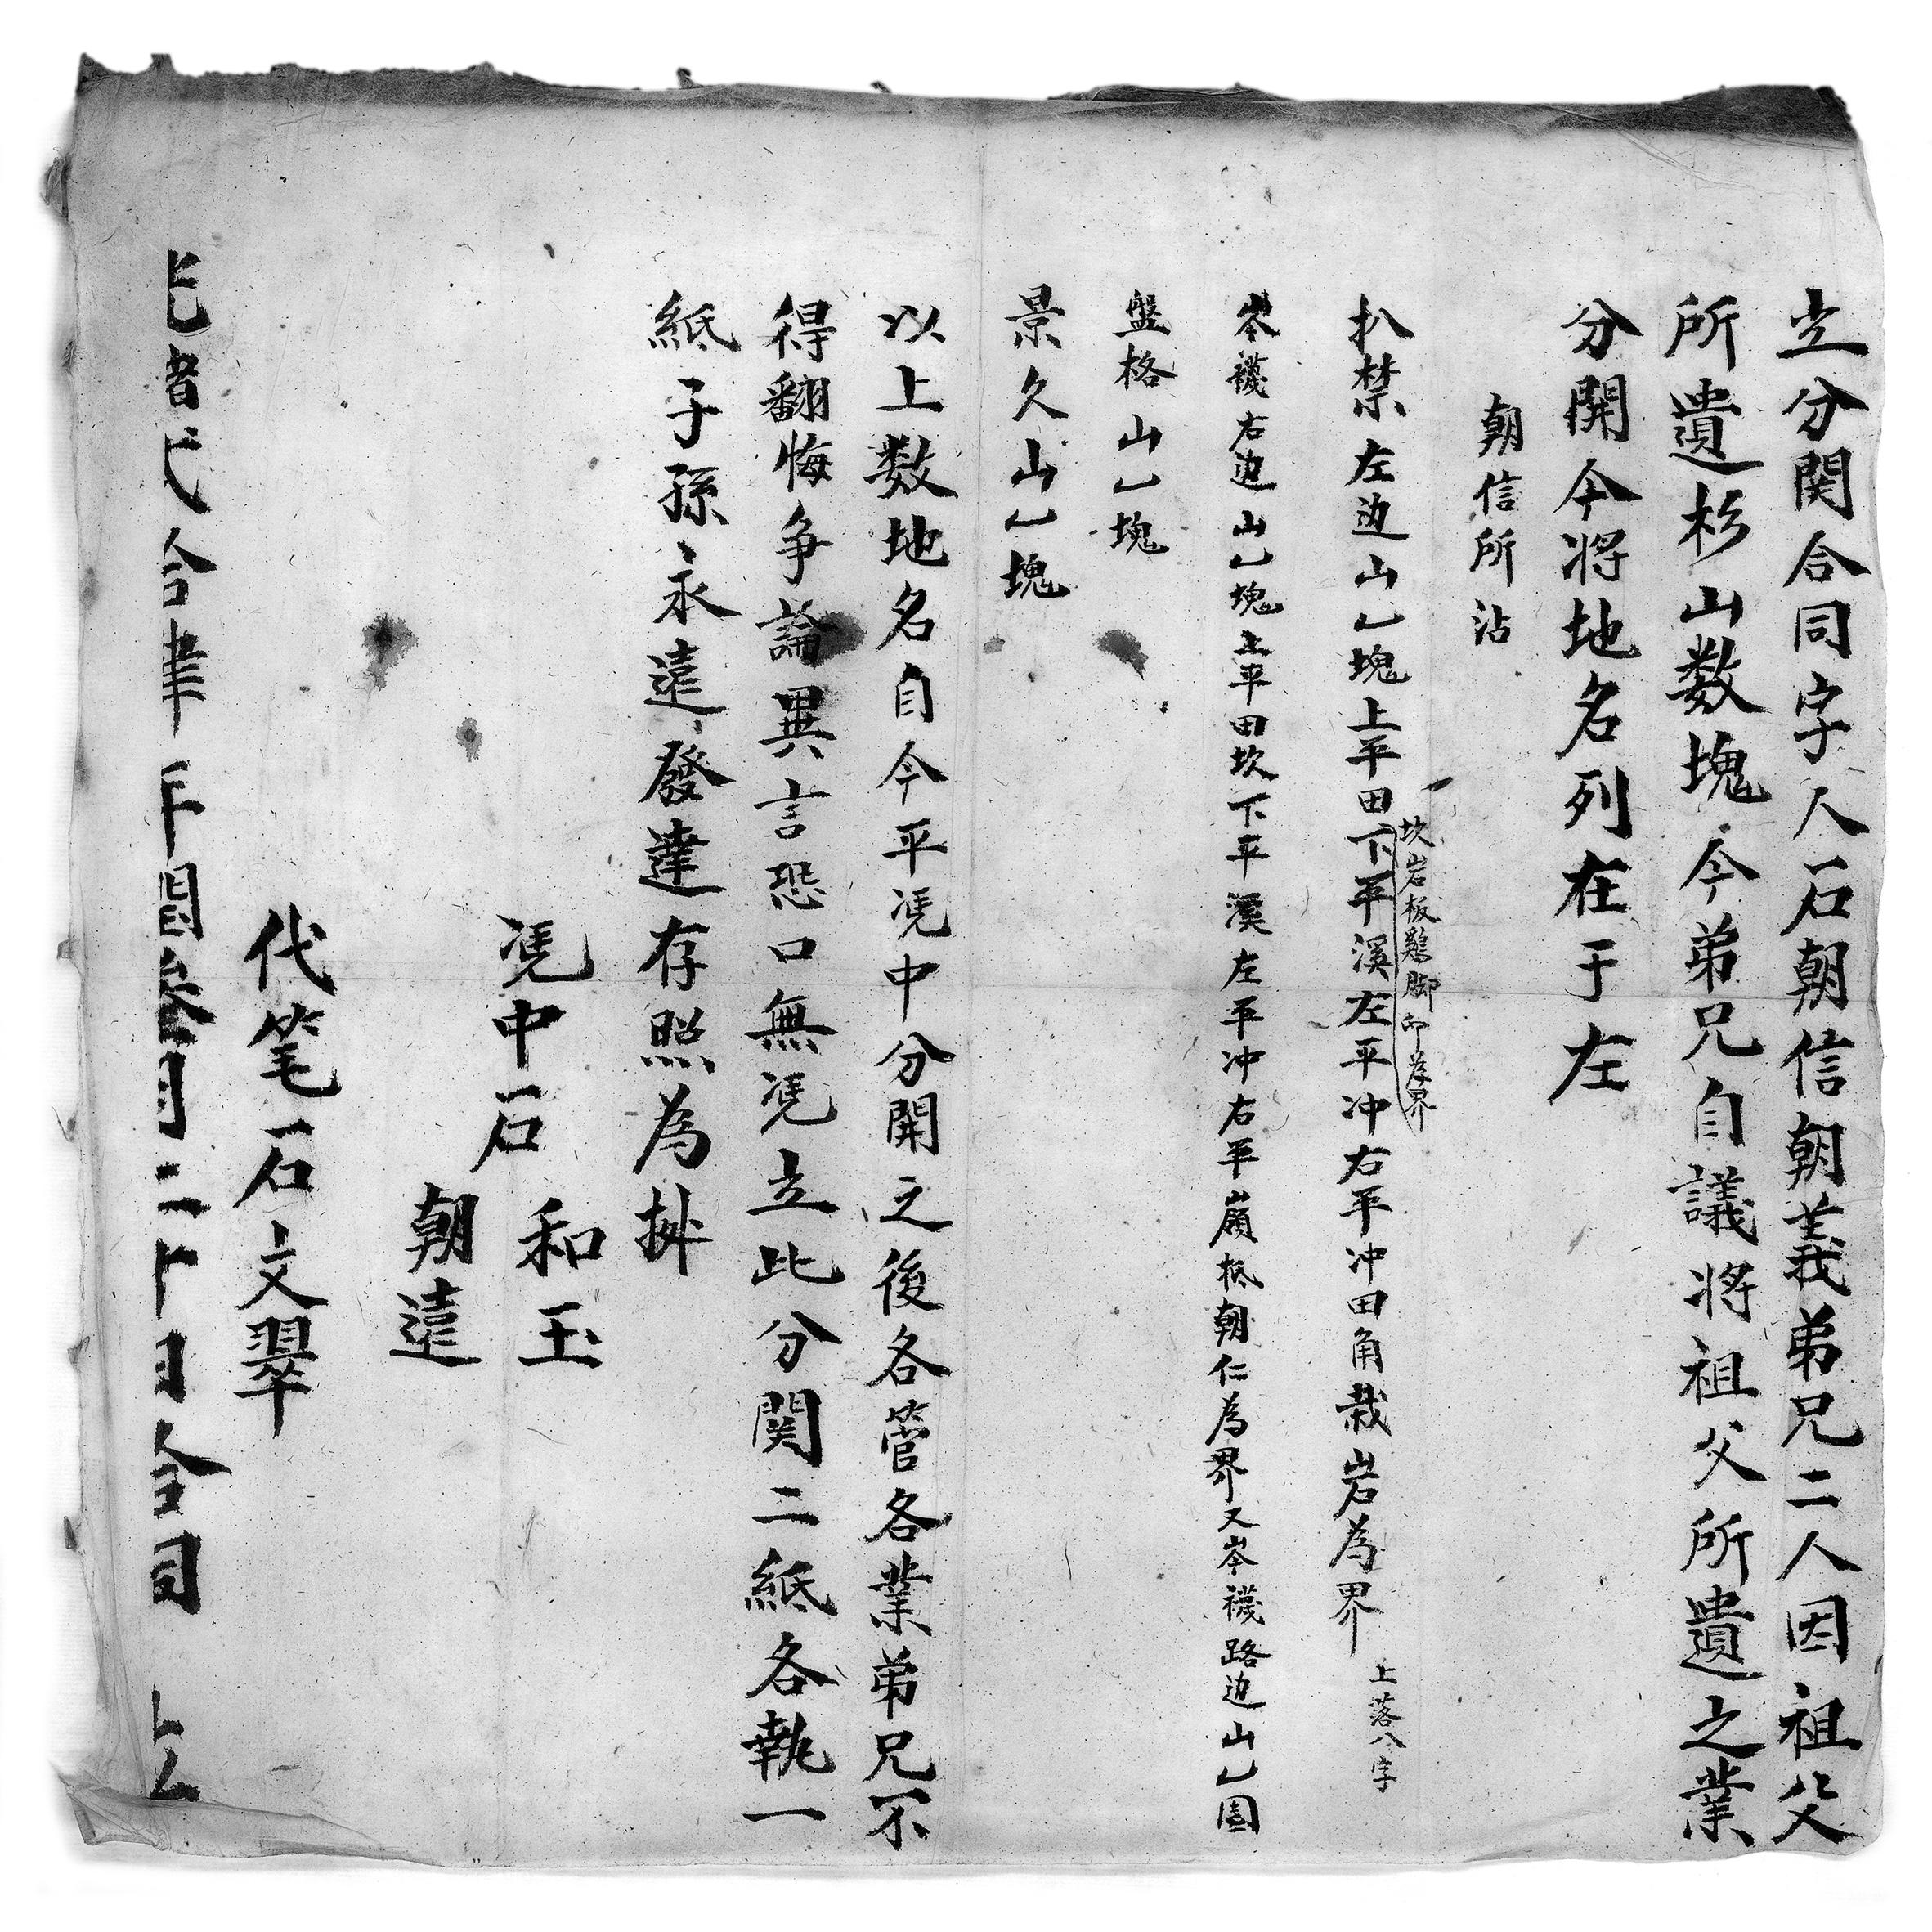 立分関合同字人石朝信朝義弟兄二人因祖父
所遺杉山数塊今弟兄自議将祖父所遺之業
分開今将地名列在于左
朝信所沾
坎岩板鷄脚印為界
扒禁左边山乙塊上平田下平溪左平冲右平冲田角栽岩為界
上落八字
岑襪右边山乙塊上平田坎下平溪左平冲右平嶺抵朝仁為界又岑襪路边山乙團
盤格山乙塊
景久山乙塊
以上数地名自今平凴中分開之後各管各業弟兄不
得翻悔争論異言恐口無凴立此分関二紙各執一
紙子孫永遠發達存照為拠
凴中石
和玉
朝遠
代笔石文翠
年閏叁月二十日